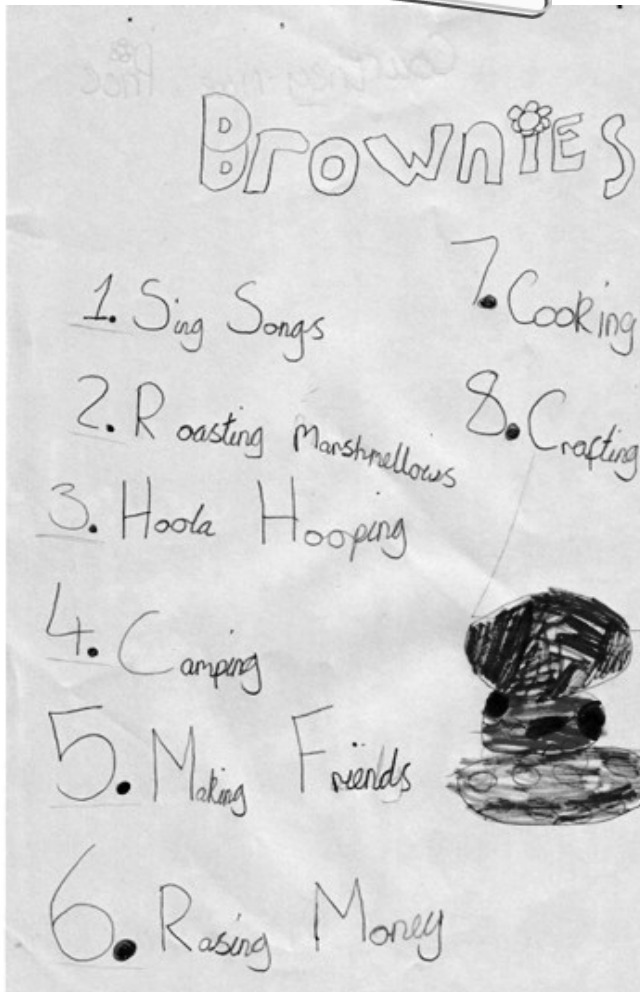 Brownies
1. Sing Songs
2. Roasting Marshmellows
3. Hoola Hooping
4. Camping
5. Making Friends
6. Rasing Money
7. Cooking
8. Crafting